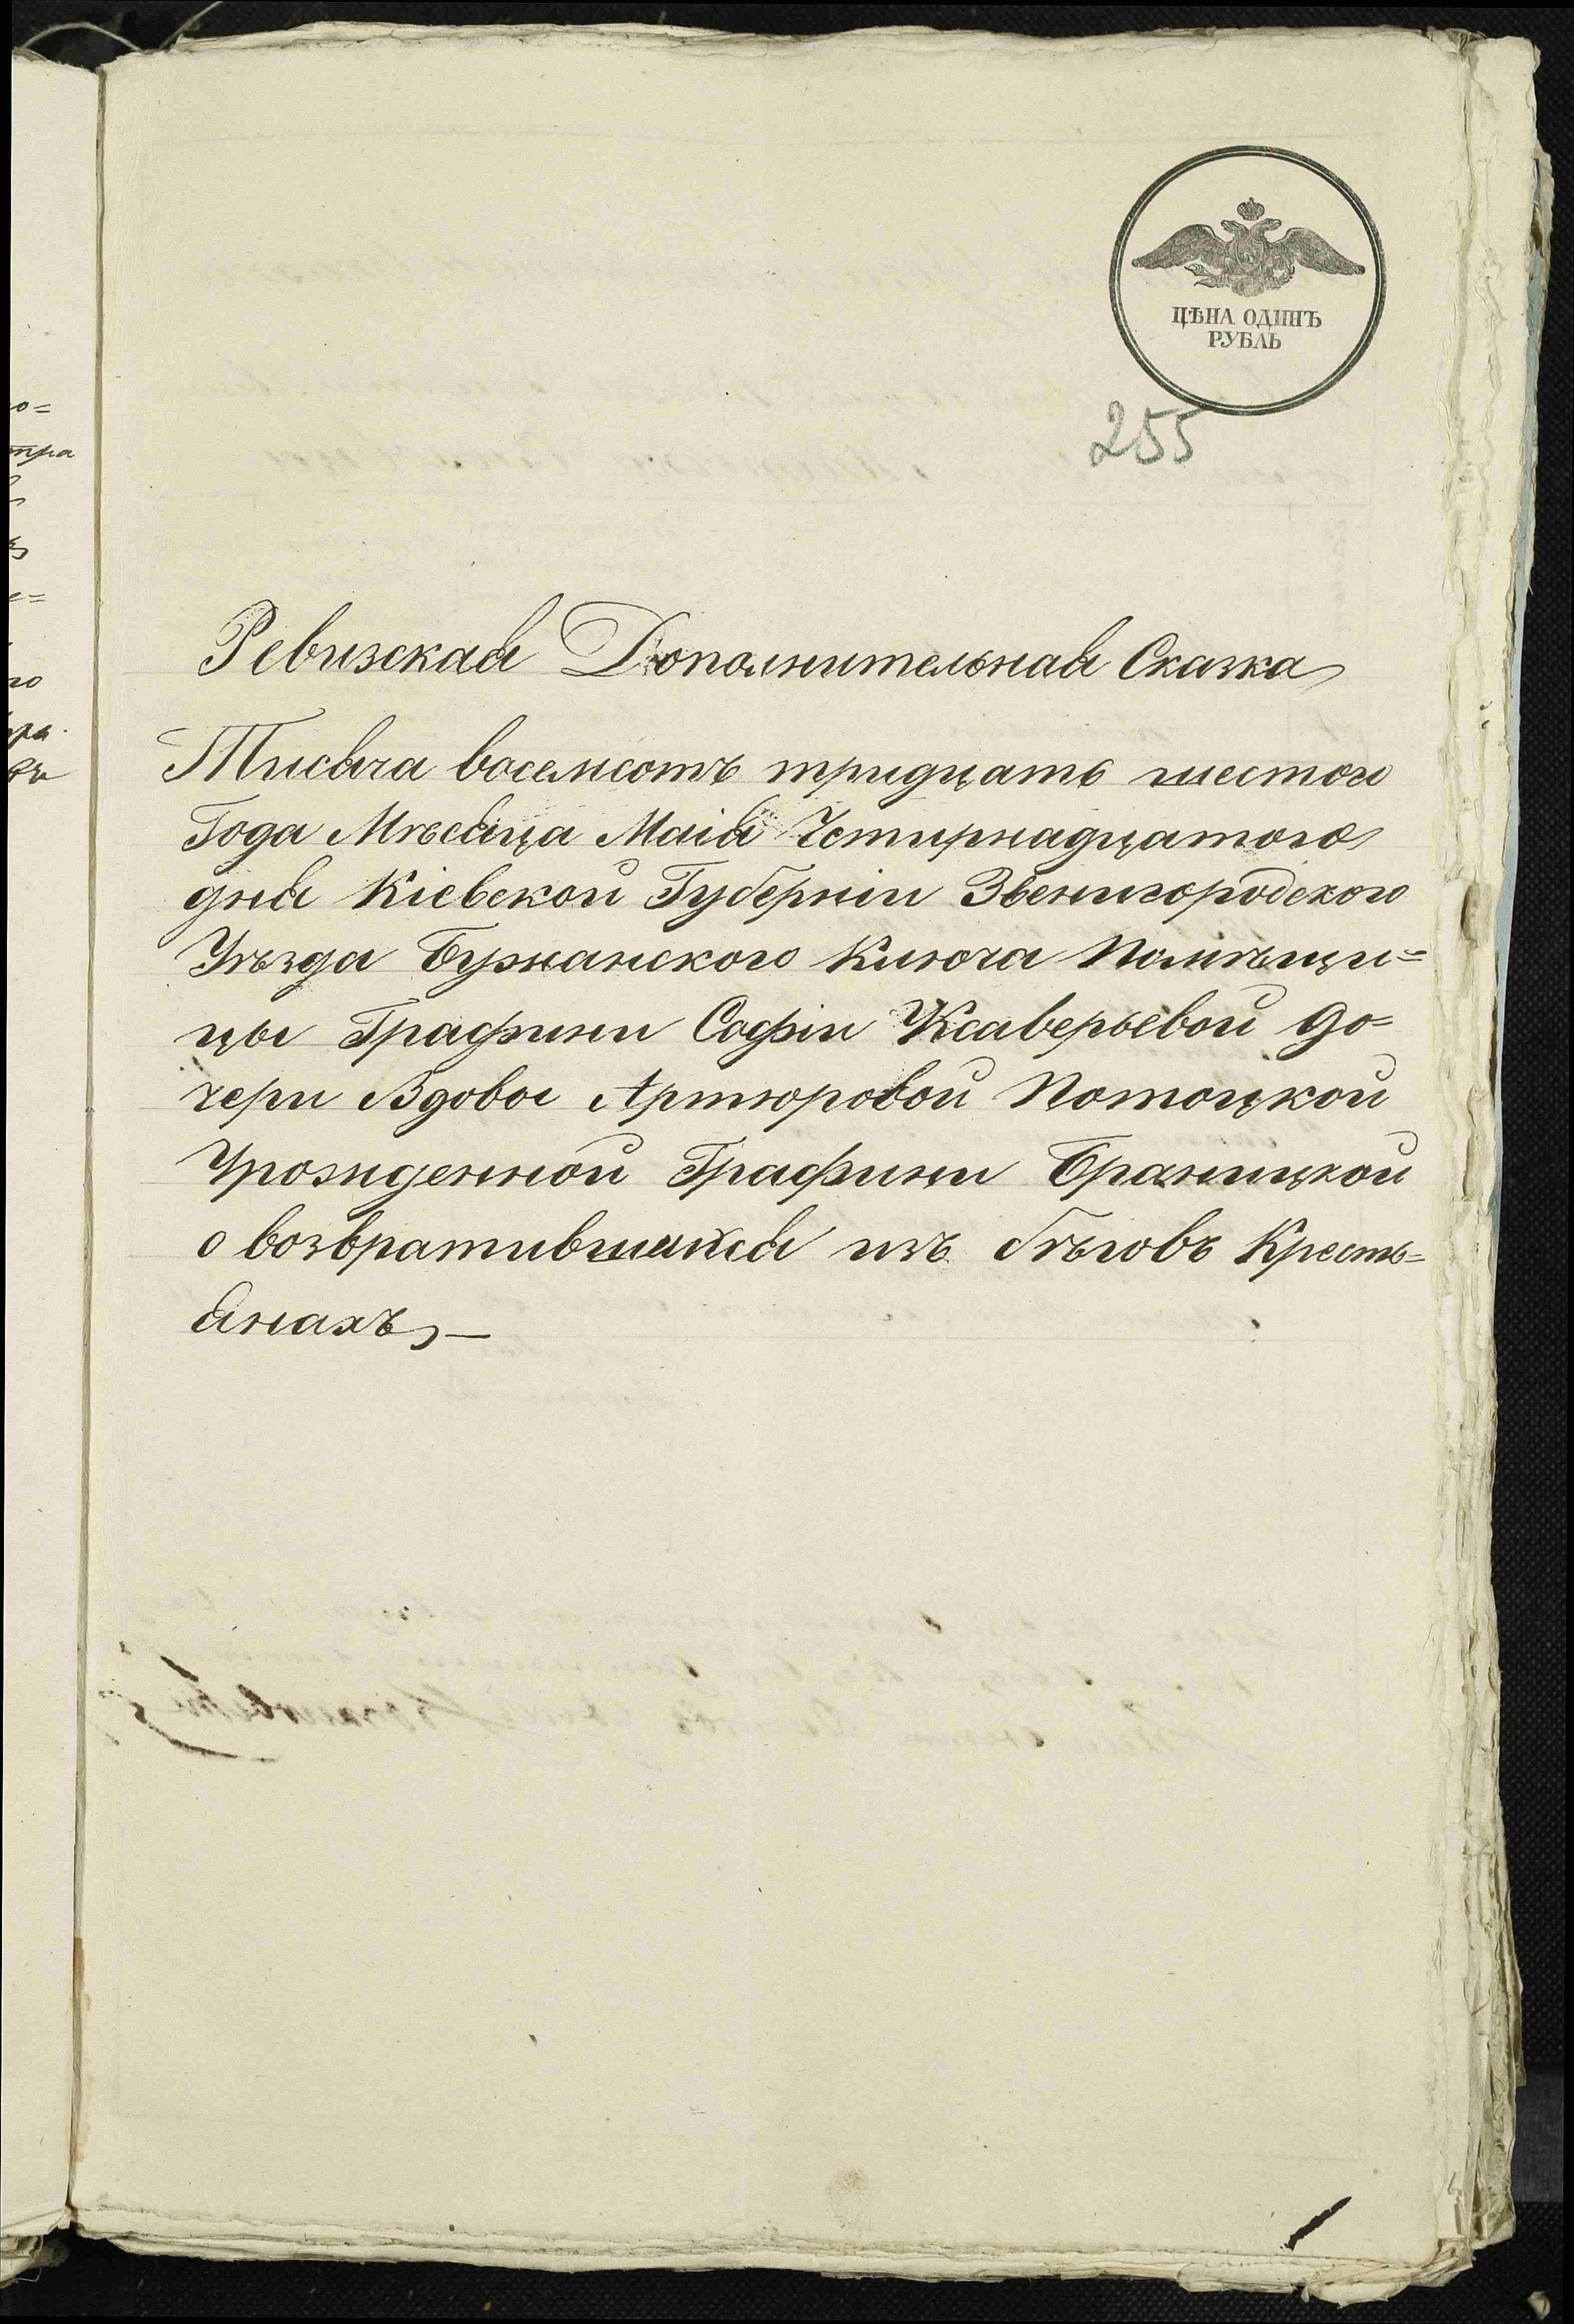 ЦѢНА ОДИНЪ
РУБЛЬ
255
Ревизская Дополнительная Сказка
Тисяча восемсотъ тридцать шестои
Года Мѣсяца Маія Четирнадцатого
дня Кіевской Губерніи Звенигородского
Уѣзда Бужанского Ключа Помѣщи=
цы Графини Софіи Ксаверьевой до=
чери Вдовы Артюровой Потоцкой
Урожденной Графини Браницкой
о возвратившихся изъ бѣговъ Кресть=
янахъ —
о=
тра
го
1